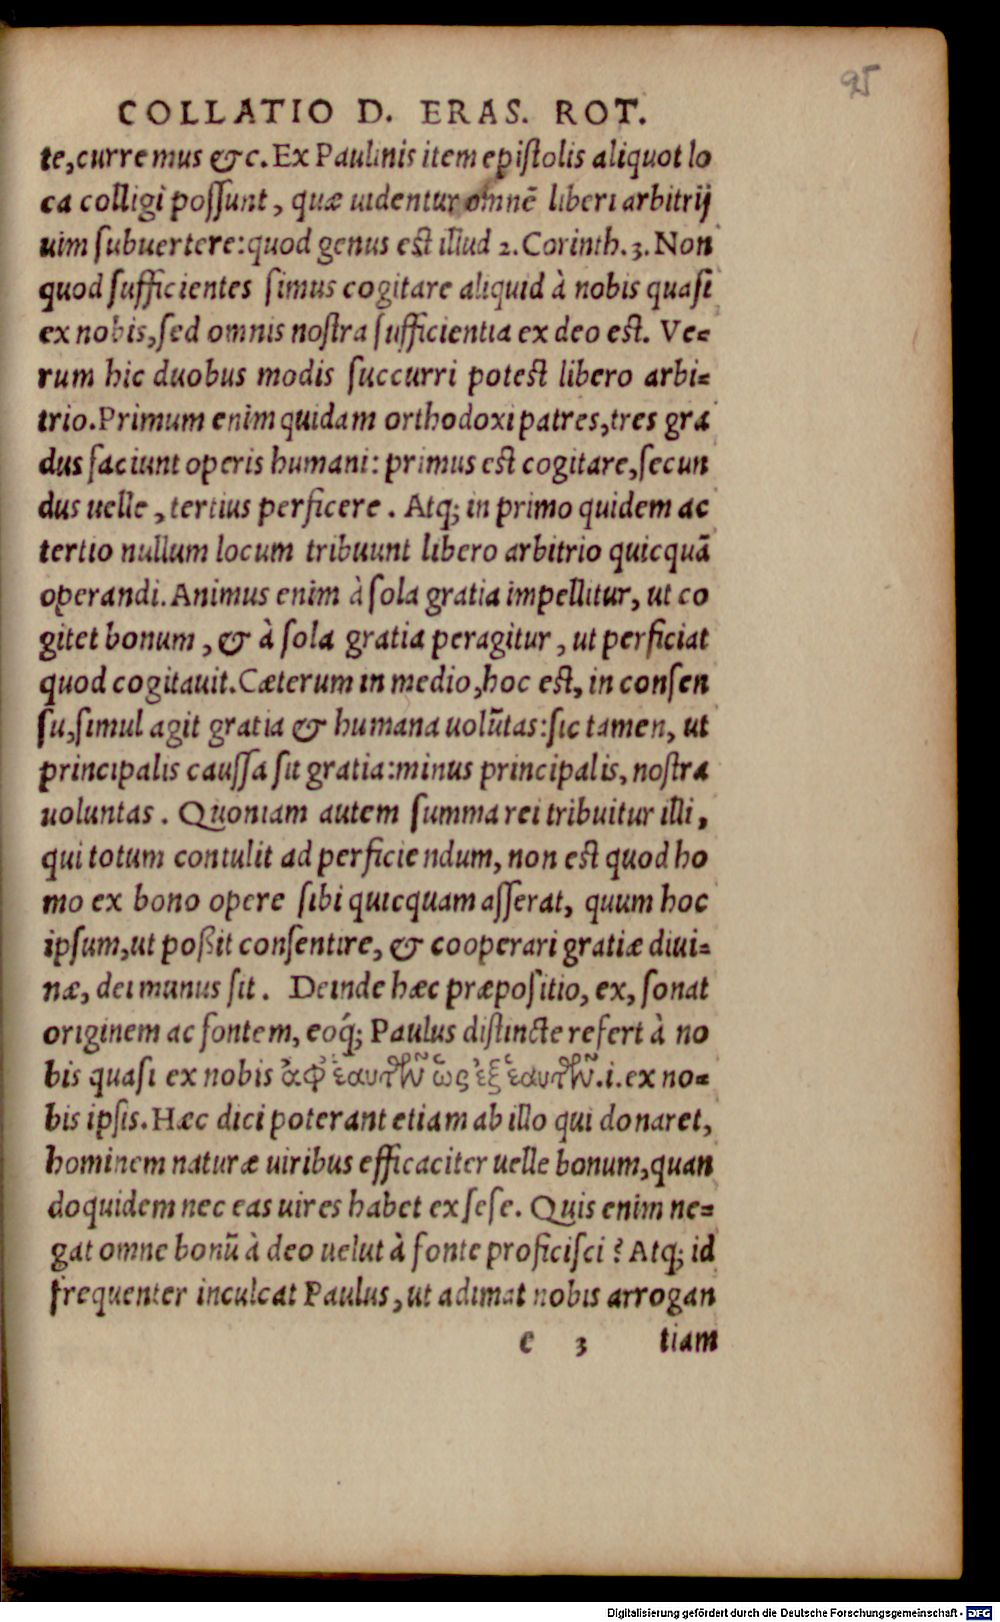 95
COLLATIO D. ERAS. ROT.
te, curremus &c. Ex Paulinis item epistolis aliquot lo
ca colligi possunt, quæ uidentur omnẽ liberi arbitrij
uim subuertere: quod genus est illud 2. Corinth. 3. Non
quod sufficientes simus cogitare aliquid à nobis quasi
ex nobis, sed omnis nostra sufficientia ex deo est. Ve=
rum hic duobus modis succurri potest libero arbi=
trio. Primum enim quidam orthodoxi patres, tres gra
dus faciunt operis humani: primus est cogitare, secun
dus uelle, tertius perficere. Atq; in primo quidem ac
tertio nullum locum tribuunt libero arbitrio quicquã
operandi. Animus enim à sola gratia impellitur, ut co
gitet bonum, & à sola gratia peragitur, ut perficiat
quod cogitauit. Cæterum in medio, hoc est, in consen
su, simul agit gratia & humana uolũtas: sic tamen, ut
principalis caussa sit gratia: minus principalis, nostra
uoluntas. Quoniam autem summa rei tribuitur illi,
qui totum contulit ad perficiendum, non est quod ho
mo ex bono opere sibi quicquam asserat, quum hoc
ipsum, ut poßit consentire, & cooperari gratiæ diui=
næ, dei munus sit. Deinde hæc præpositio, ex, sonat
originem ac fontem, eoq́; Paulus distincte refert à no
bis quasi ex nobis ἀφ' ἑαυτῶν ὡς ἐξ ἑαυτῶν .i. ex no=
bis ipsis. Hæc dici poterant etiam ab illo qui donaret,
hominem naturæ uiribus efficaciter uelle bonum, quan
doquidem nec eas uires habet ex sese. Quis enim ne=
gat omne bonũ à deo uelut à fonte proficisci? Atq; id
frequenter inculcat Paulus, ut adimat nobis arrogan
e 3 tiam
Digitalisierung gefördert durch die Deutsche Forschungsgemeinschaft - DFG